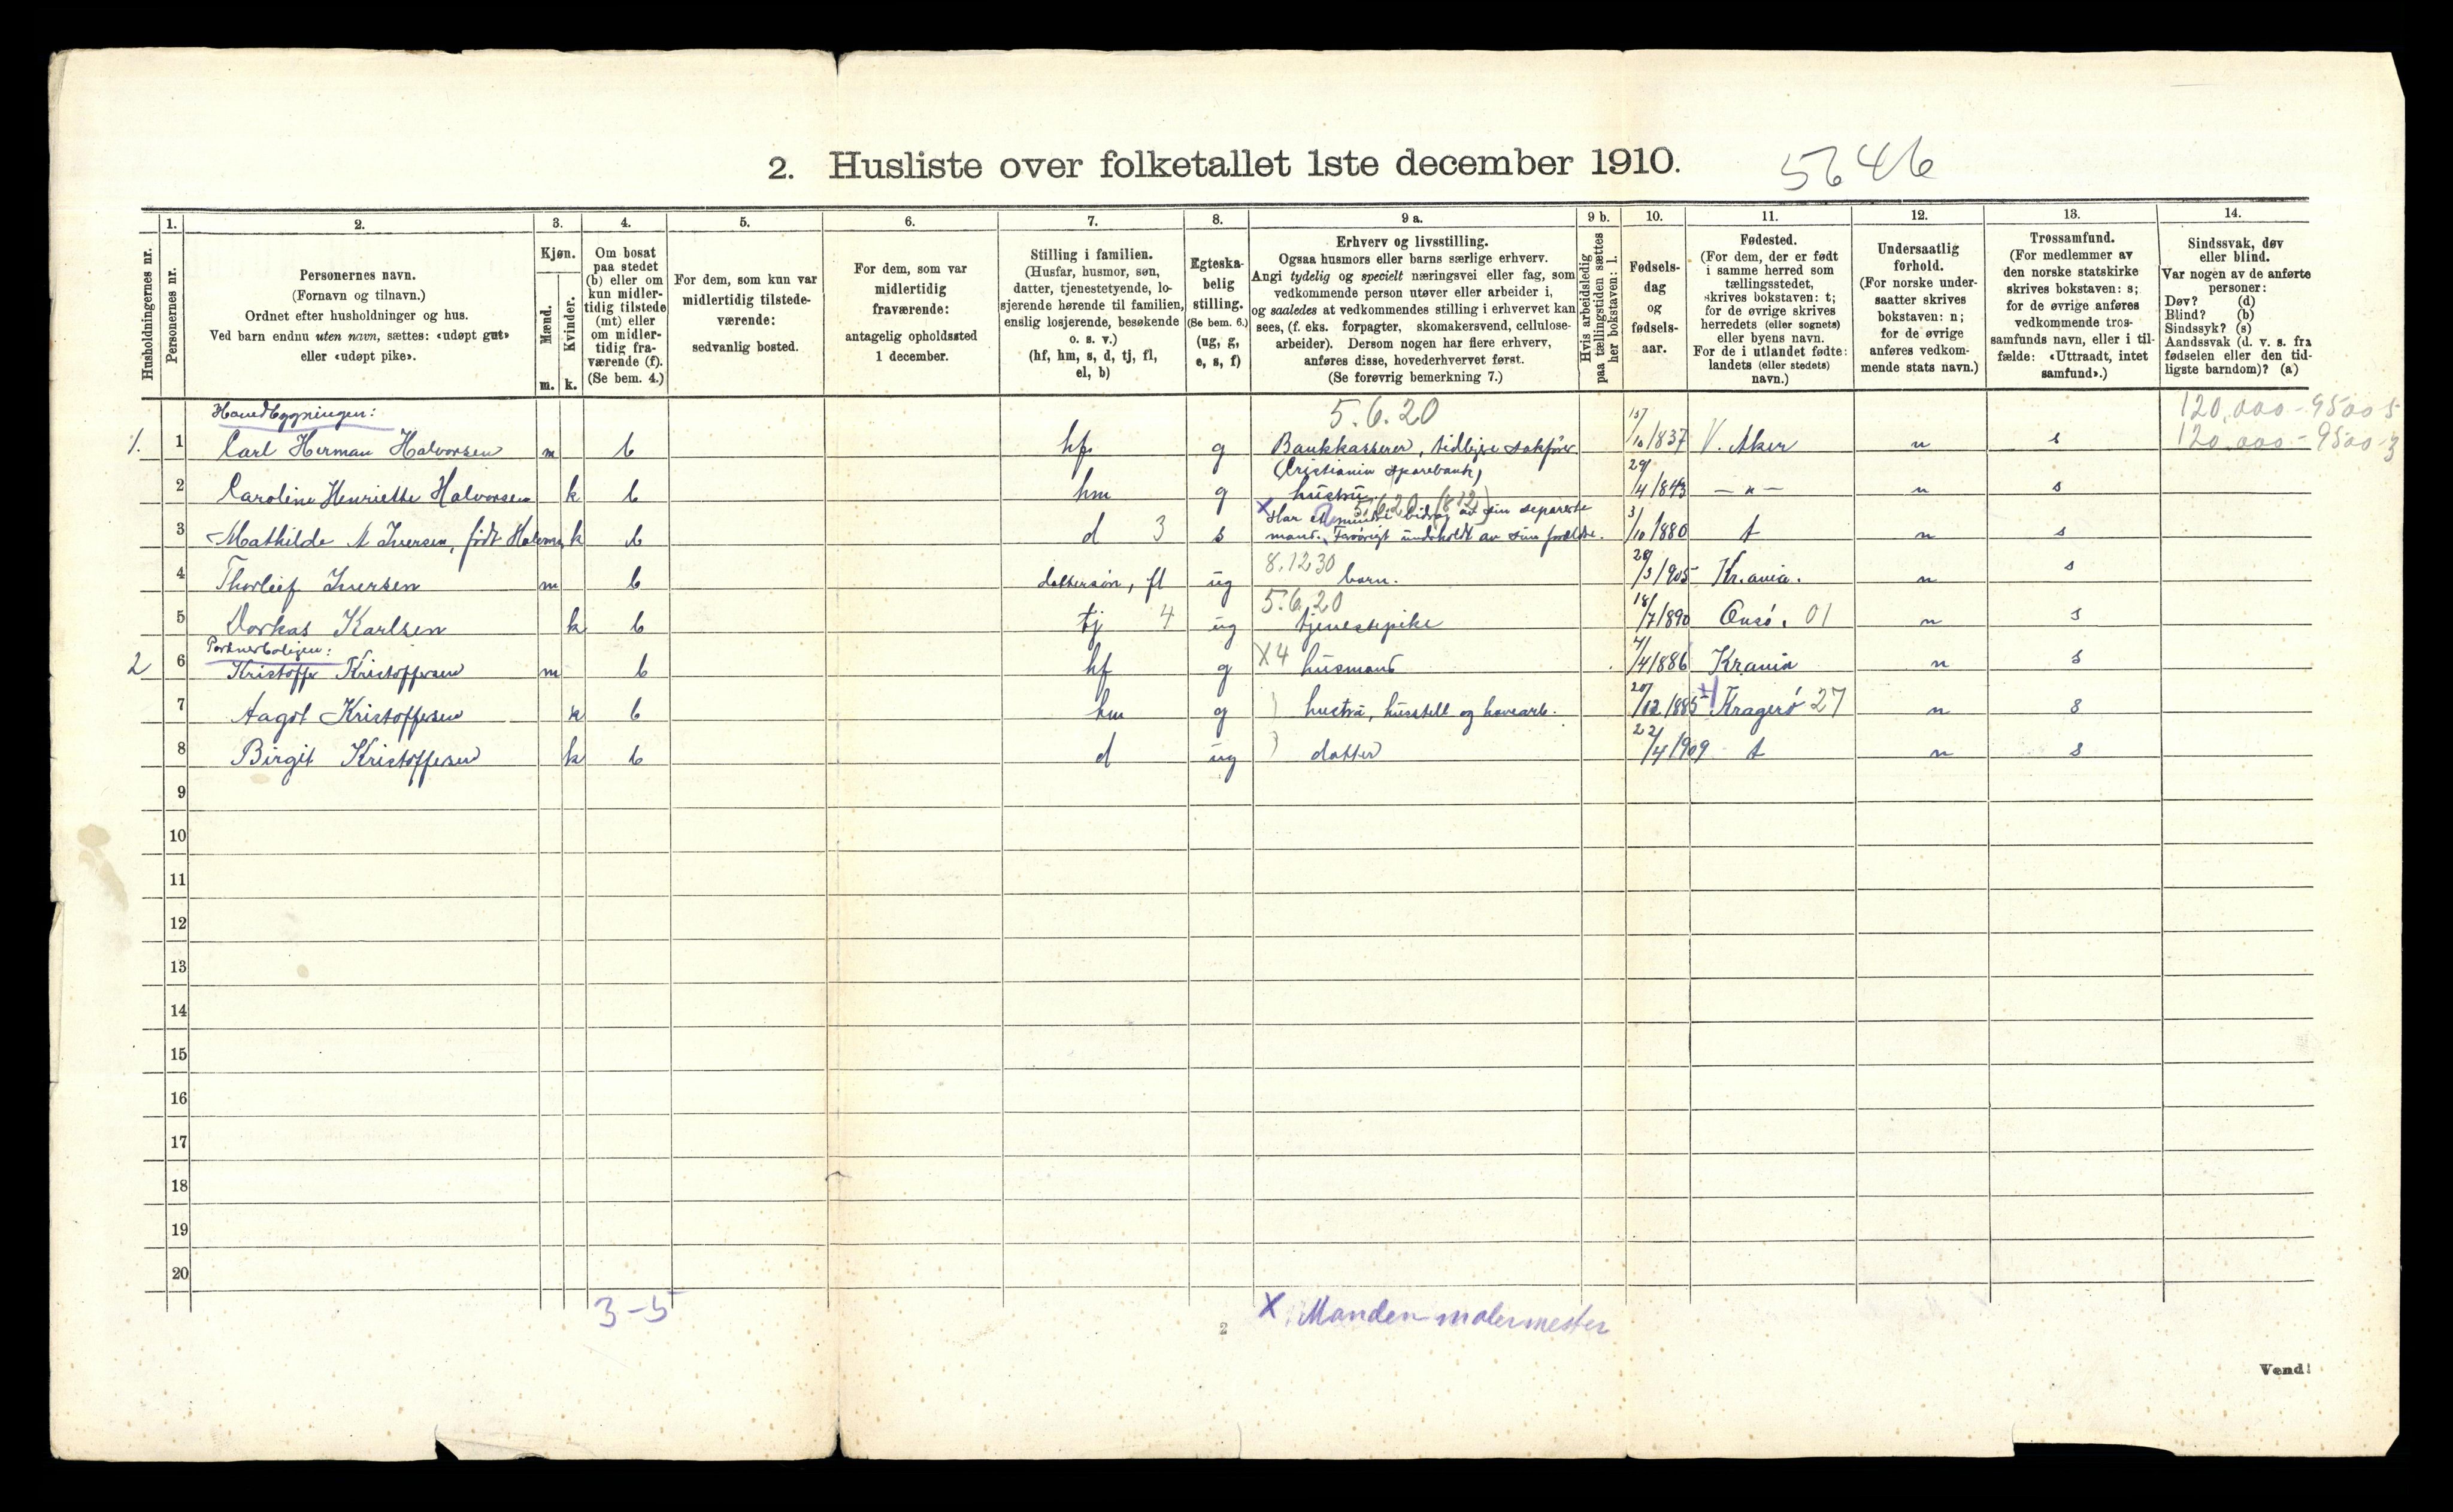 2. Husliste over folketallet 1ste december 1910. 5646
Husholdningernes nr.
1. Personernes nr.
2. Personernes navn.
(Fornavn og tilnavn.)
Ordnet efter husholdninger og hus.
Ved barn endnu uten navn, sættes: «udøpt gut»
eller «udøpt pike».
3. Kjøn.
Mænd. m.
Kvinder. k.
4. Om bosat
paa stedet
(b) eller om
kun midler-
tidig tilstede
(mt) eller
om midler-
tidig fra-
værende (f).
(Se bem. 4.)
5. For dem, som kun var
midlertidig tilstede-
værende:
sedvanlig bosted.
6. For dem, som var
midlertidig
fraværende:
antagelig opholdssted
1 december.
7. Stilling i familien.
(Husfar, husmor, søn,
datter, tjenestetyende, lo-
sjerende hørende til familien,
enslig losjerende, besøkende
o. s. v.)
(hf, hm, s, d, tj, fl,
el, b)
8. Egteska-
belig
stilling.
(Se bem. 6.)
(ug, g,
e, s, f)
9 a. Erhverv og livsstilling.
Ogsaa husmors eller barns særlige erhverv.
Angi tydelig og specielt næringsvei eller fag, som
vedkommende person utøver eller arbeider i,
og saaledes at vedkommendes stilling i erhvervet kan
sees, (f. eks. forpagter, skomakersvend, cellulose-
arbeider). Dersom nogen har flere erhverv,
anføres disse, hovederhvervet først.
(Se forøvrig bemerkning 7.)
9 b. Hvis arbeidsledig
paa tællingstiden sættes
her bokstaven: l.
10. Fødsels-
dag
og
fødsels-
aar.
11. Fødested.
(For dem, der er født
i samme herred som
tællingsstedet,
skrives bokstaven: t;
for de øvrige skrives
herredets (eller sognets)
eller byens navn.
For de i utlandet fødte:
landets (eller stedets)
navn.)
12. Undersaatlig
forhold.
(For norske under-
saatter skrives
bokstaven: n;
for de øvrige
anføres vedkom-
mende stats navn.)
13. Trossamfund.
(For medlemmer av
den norske statskirke
skrives bokstaven: s;
for de øvrige anføres
vedkommende tros-
samfunds navn, eller i til-
fælde: «Uttraadt, intet
samfund».)
14. Sindssvak, døv
eller blind.
Var nogen av de anførte
personer:
Døv? (d)
Blind? (b)
Sindssyk? (s)
Aandssvak (d. v. s. fra
fødselen eller den tid-
ligste barndom)? (a)
Hovedbygningen: 5.6.20 120.000 - 9500
1. 1 Carl Herman Halvorsen m b hf g Bankkasserer, tidligere sakfører 15/10 1837 V. Aker n s 120.000 - 9500
(Cristiania sparebank)
2 Caroline Henriette Halvorsen k b hm g hustru. 29/4 1843 — " — n s
5.6.20 (812)
3 Mathilde M Iversen, født k b d 3 s X Har et mindre bidrag av sin separerte
mand. Forøvrigt underholdt av sine forældre. 3/10 1880 t n s
4 Thorleif Iversen m b dattersøn, fl ug 8.12 30 barn. 28/3 1905 Kr.ania. n s
5.6.20
5 Dorkas Karlsen k b tj 4 ug tjenestepike 18/7 1890 Onsö. 01 n s
Portnerboligen:
2 6 Kristoffer Kristoffersen m b hf g X4 husmand 4/4 1886 Krania n s
7 Aagot Kristoffersen k b hm g hustru, husstell og havearb. 20/12 1885 Kragerö 27 n s
8 Birgit Kristoffersen k b d ug datter 22/4 1909 t n s
9
10
11
12
13
14
15
16
17
18
19
20
3-5
X. Manden malermester
2
Vend!